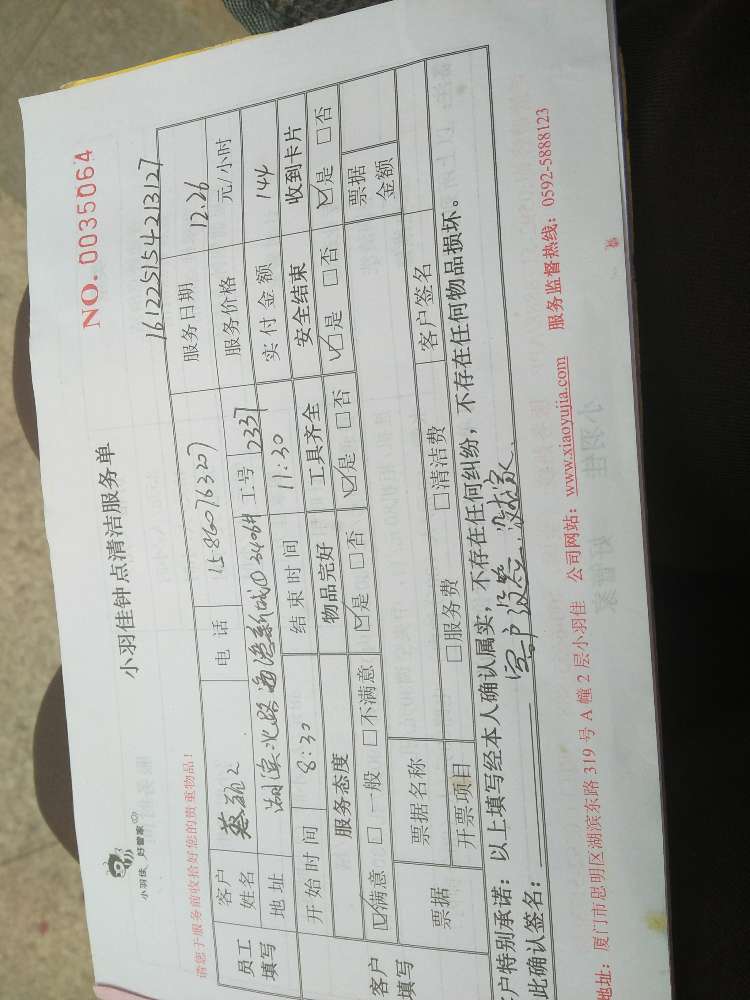 小羽佳 好管家
小羽佳钟点清洁服务单
NO. 0035064
请您于服务前收拾好您的贵重物品！
161225154213127
员工填写
客户姓名
电话 15860276327
服务日期 12.26
地址 湖滨北路海湾新城
工号 2337
服务价格 元/小时
开始时间 8:30 结束时间 11:30 实付金额 144
客户填写
服务态度 物品完好 工具齐全 安全结束 收到卡片
☑满意 □一般 □不满意 ☑是 □否 ☑是 □否 ☑是 □否 ☑是 □否
票据 票据名称 票据金额
开票项目 □服务费 □清洁费 客户签名
客户特别承诺：以上填写经本人确认属实，不存在任何纠纷，不存在任何物品损坏。
此确认签名： 客户没签 没在家
地址：厦门市思明区湖滨东路 319 号 A 幢 2 层小羽佳 公司网站：www.xiaoyujia.com 服务监督热线：0592-5888123